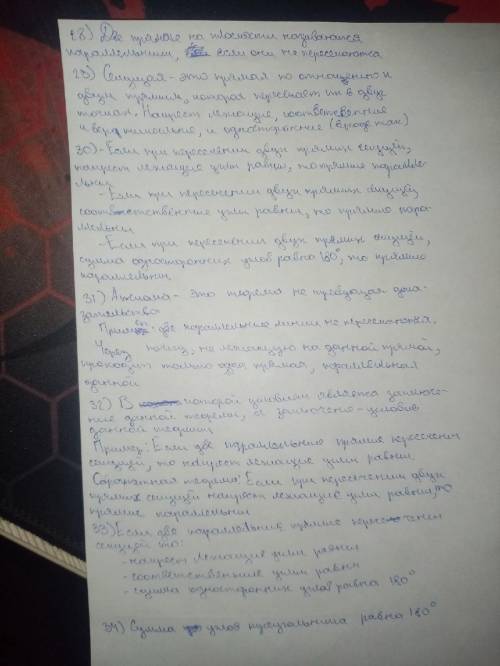 28) Две прямые на плоскости называются
параллельными, если они не пересекаются
29) Секущая - это прямая по отношению к
двум прямым, которая пересекает их в двух
точках. Накрест лежащие, соответственные
и вертикальные, и односторонние (вроде так)
30) - Если при пересечении двух прямых секущей,
накрест лежащие углы равны, то прямые паралле-
льны
- Если при пересечении двух прямых секущей,
соответственные углы равны, то прямые пара-
лельны
- Если при пересечении двух прямых секущей,
сумма односторонних углов равна 180°, то прямые
параллельны
31) Аксиома - это теорема не требующая дока-
зательства
Пример: две параллельные линии не пересекаются.
Через точку, не лежащую на данной прямой,
проходит только одна прямая, параллельная
данной
32) В которой условием является заключе-
ние данной теоремы, а заключение - условие
данной теоремы
Пример: Если две параллельные прямые пересечены
секущей, то накрест лежащие углы равны
Обратная теорема: Если при пересечении двух
прямых секущей накрест лежащие углы равны, то
прямые параллельны
33) Если две параллельные прямые пересечены
секущей то:
- накрест лежащие углы равны
- соответственные углы равны
- сумма односторонних углов равна 180°
34) Сумма углов треугольника равна 180°